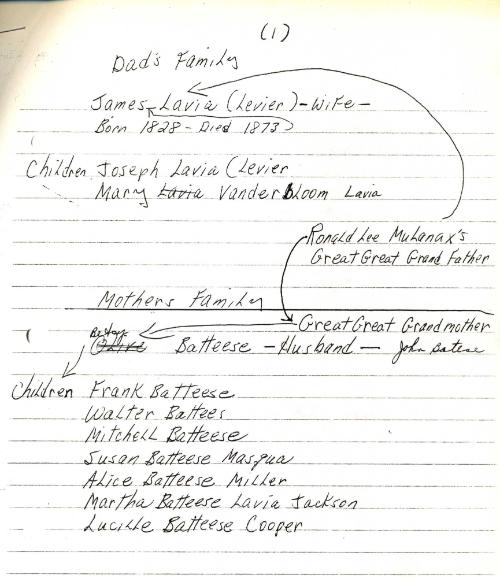 (1)
Dad's Family
James Lavia (Levier) - Wife -
Born 1828 - Died 1873
Children Joseph Lavia (Levier
Mary Lavia Vanderbloom Lavia
Ronald Lee Mulanax's
Great Great Grand Father
Mothers Family
Great Great Grandmother
Batteese - Husband - John Batese
Children Frank Batteese
Walter Battees
Mitchell Batteese
Susan Batteese Masqua
Alice Batteese Miller
Martha Batteese Lavia Jackson
Lucille Batteese Cooper